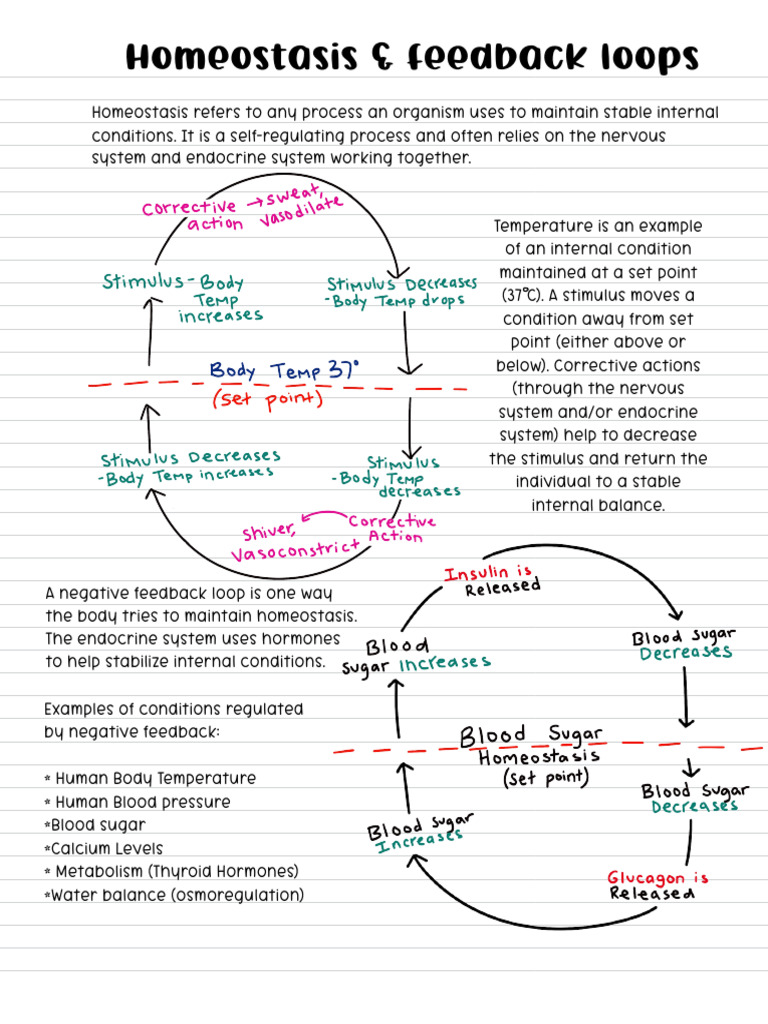 Homeostasis & feedback loops
Homeostasis refers to any process an organism uses to maintain stable internal
conditions. It is a self-regulating process and often relies on the nervous
system and endocrine system working together.
Corrective → sweat,
action vasodilate
Stimulus - Body
Temp
increases
Stimulus Decreases
- Body Temp drops
Body Temp 37°
(set point)
Stimulus Decreases
- Body Temp increases
Stimulus
- Body Temp
decreases
Corrective
Action
shiver,
Vasoconstrict
Temperature is an example
of an internal condition
maintained at a set point
(37°C). A stimulus moves a
condition away from set
point (either above or
below). Corrective actions
(through the nervous
system and/or endocrine
system) help to decrease
the stimulus and return the
individual to a stable
internal balance.
A negative feedback loop is one way
the body tries to maintain homeostasis.
The endocrine system uses hormones
to help stabilize internal conditions.
Examples of conditions regulated
by negative feedback:
* Human Body Temperature
* Human Blood pressure
*Blood sugar
*Calcium Levels
* Metabolism (Thyroid Hormones)
*Water balance (osmoregulation)
Insulin is
Released
Blood
sugar Increases
Blood sugar
Decreases
Blood Sugar
Homeostasis
(set point)
Blood Sugar
Decreases
Blood sugar
Increases
Glucagon is
Released